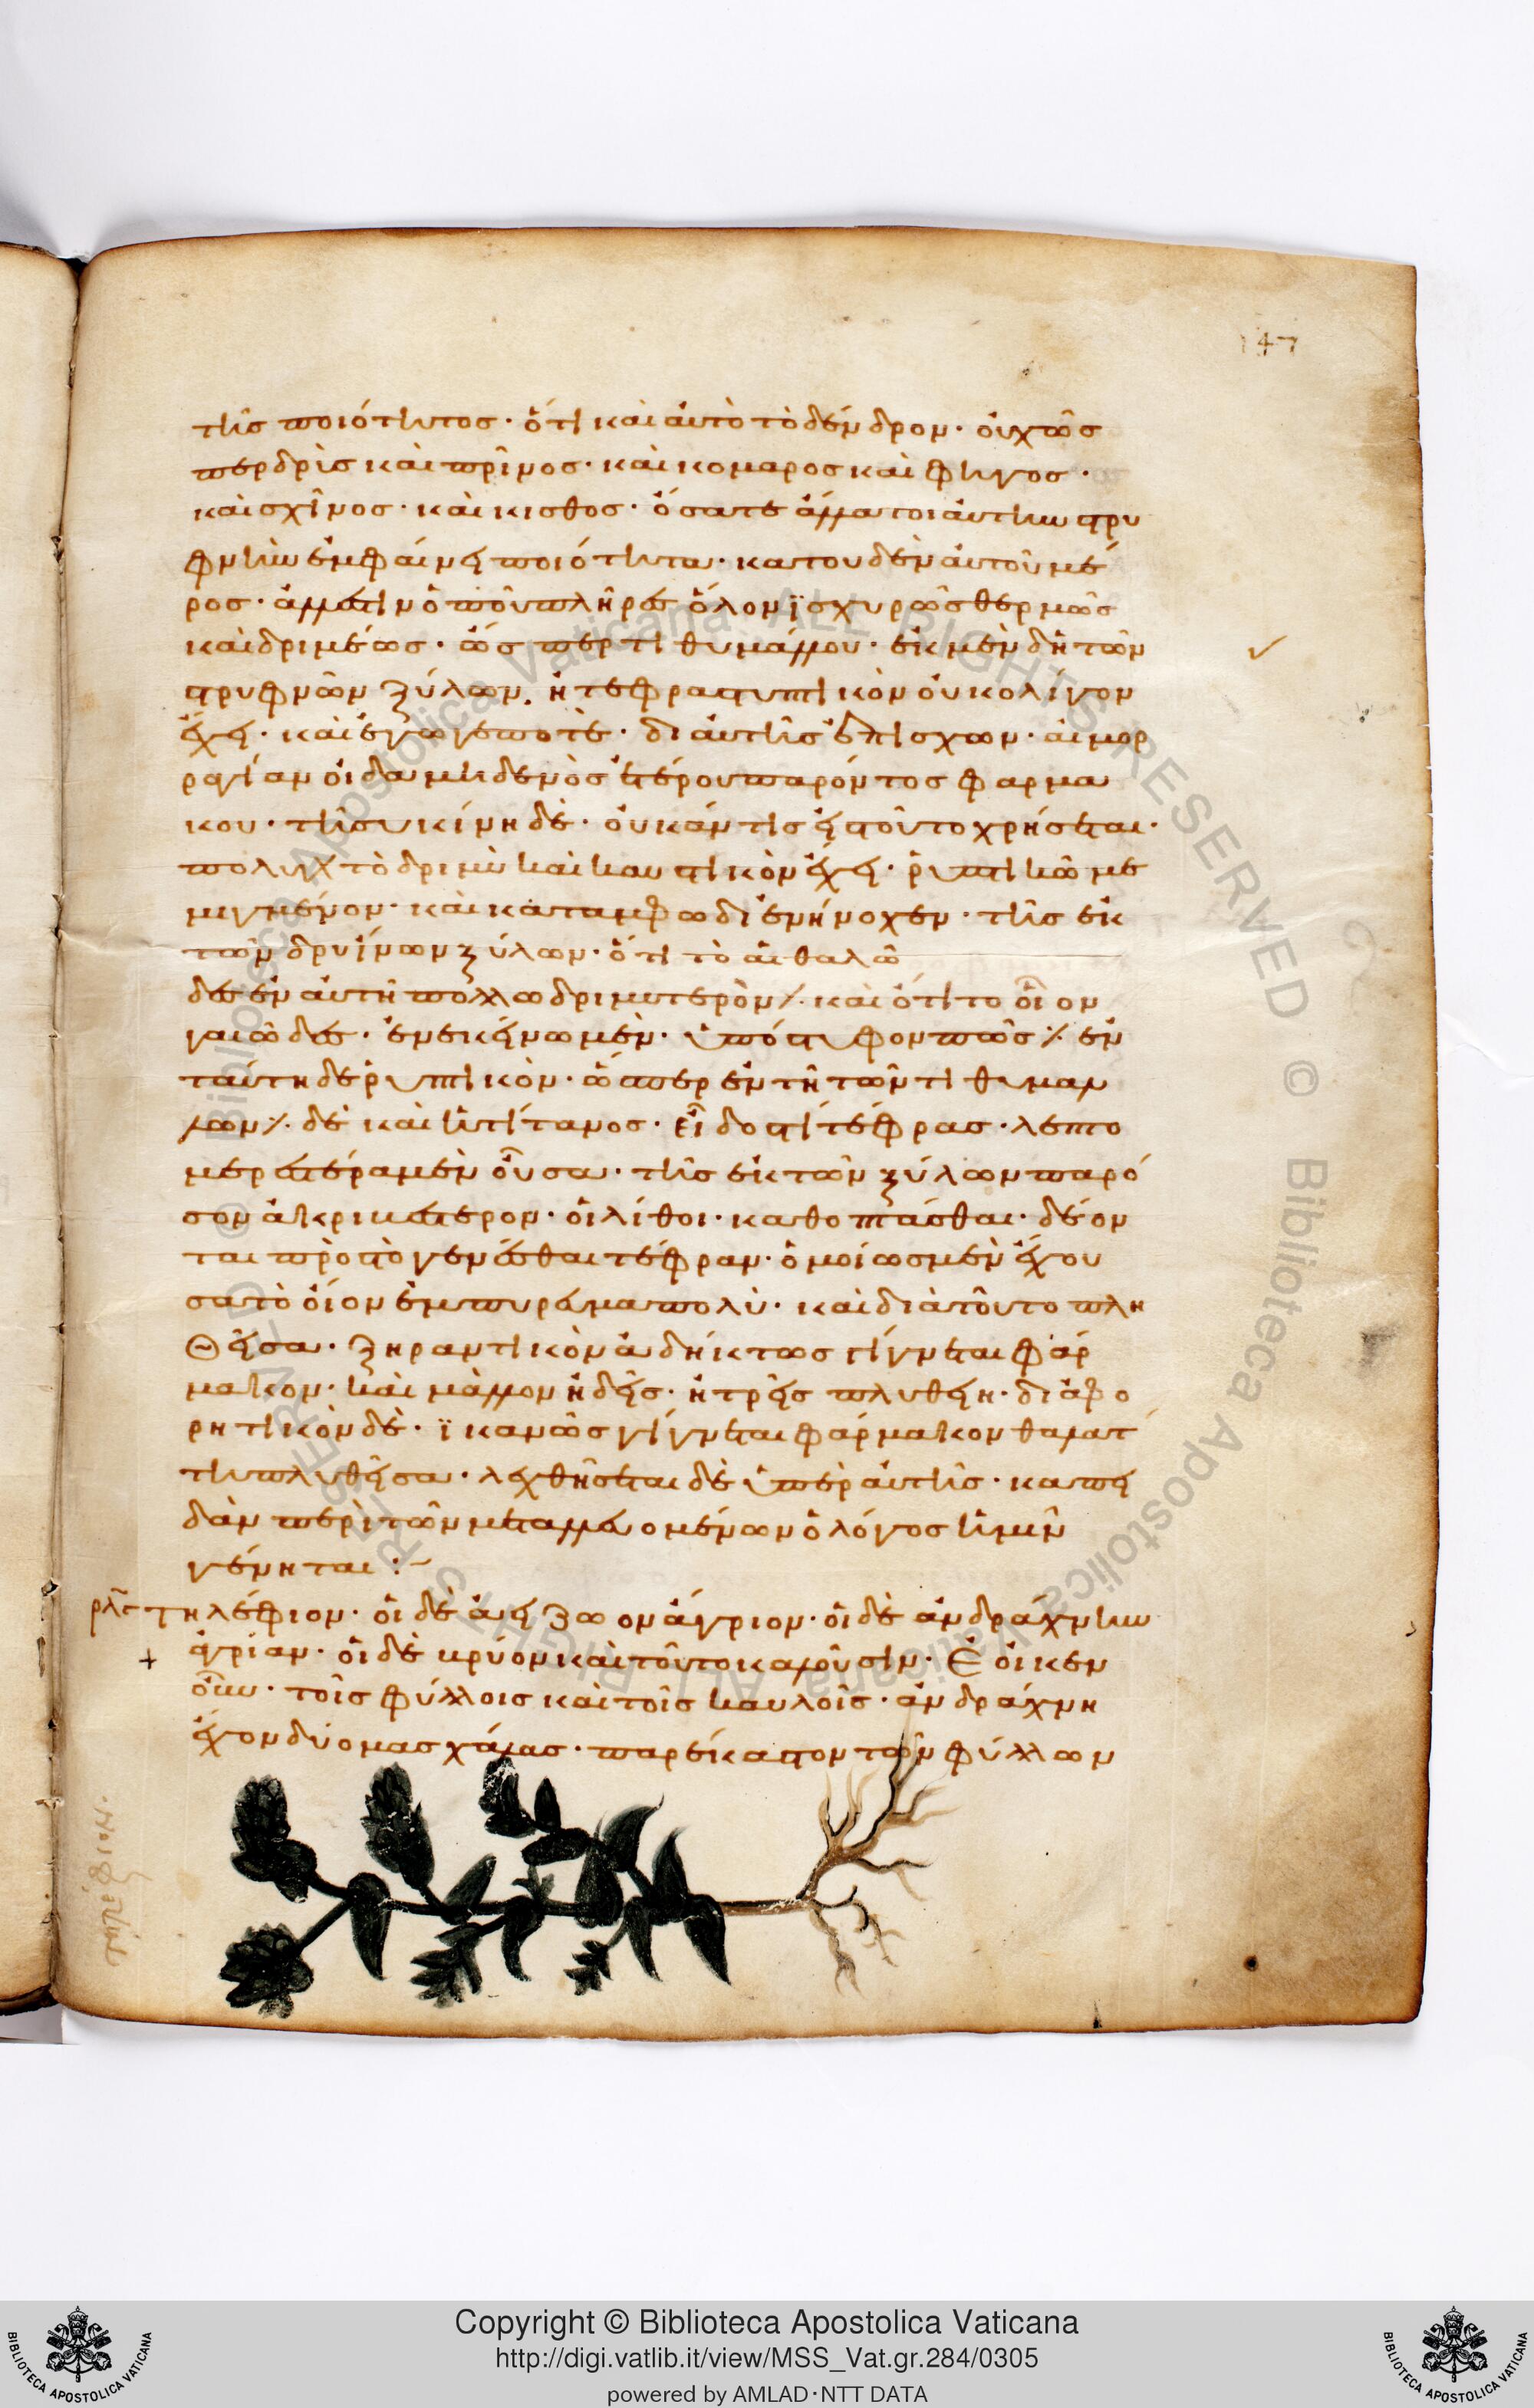 147
τῆς ποιότητος· ὅτι καὶ αὐτὸ τὸ δένδρον· οὐχ ὥς
περ δρὺς καὶ πρῖνος· καὶ κομαρος καὶ φηγος·
καὶ σχῖνος· καὶ κισθος· ὅσα τε ἄλλα τοιαύτην στρυ
φνὴν ἐμφαίνει ποιότητα· κατ' ουδὲν αὐτοῦ μέ
ρος· ἀλλ' ἐστὶν ὀποῦ πλῆρες ὅλον ϊσχυρῶς θερμῶς
καὶ δριμέως· ὥς περ τιθυμάλλου· ἐκ μὲν δὴ τῶν
στρυφνῶν ξύλων, ἡ τέφρα στυπτικὸν οὐκ ολίγον
ἔχει· καὶ ἔγωγέ ποτὲ· δι αὐτῆς ἐπισχων· αἱμορ
ραγίαν οἶδα μηδενὸς ἑτέρου παρόντος φαρμα
κου· τῆ συκίνη δὲ· οὐκ άν τις εἰς τοῦτο χρήσεται·
πολὺ γὰρ τὸ δριμὺ καὶ καυστικὸν ἔχει· ῥυπτικῶ με
μιγμένον· καὶ κατ αμφω διενήνοχεν· τῆς ἐκ
τῶν δρυΐνων ξύλων· ὅτι τὸ αἰθαλῶ
δες ἐν αὐτῆ πολλω δριμυτερὸν⁒ καὶ ὅτι το οἷον
γαιῶδες· ἐν εκείνω μὲν· ὑπόστυφον πῶς⁒ ἐν
ταύτη δὲ ῥυπτικὸν· ὥσπερ ἐν τῆ τῶν τιθυμαλ
λων⁒ δὲ καὶ ἡ τίτανος· εἶδος τί τέφρας· λεπτο
μερεστέρα μὲν οὖσα· τῆς ἐκ τῶν ξύλων παρό
σον ἀκριβέστερον· οἱ λίθοι· καθοπτᾶσθαι· δέον
ται πρὸ τὸ γενέσθαι τέφραν· ὁμοίως μὲν ἔχου
σα τὸ οἷον ἐμπυρευμα πολὺ· καὶ διὰ τοῦτο πλη
Θεῖσα· ξηραντικὸν ἀδήκτως γίγνεται φάρ
μακον· καὶ μᾶλλον ἢ δεῖς· ἢ τρεῖς πλυθείη· διαφο
ρητικὸν δὲ· ϊκανῶς γίγνεται φάρμακον θαλατ
τη πλυθεῖσα· λεχθήσεται δὲ ὑπὲρ αὐτῆς· καπει
δὰν περὶ τῶν μεταλλευομένων ὁ λόγος ἡμῖν
γένηται :~
ρλϛ τηλέφιον· οἱ δὲ ἀείζωον ἄγριον· οἱ δὲ ἀνδράχνην
ἀγρίαν· οἱ δὲ κρύον καὶ τοῦτο καλοῦσιν· Ἔοικεν
οὖν· τοῖς φύλλοις καὶ τοῖς καυλοῖς· ἀνδράχνη
ἔχον δύο μασχάλας· παρ ἕκαστον τῶν φύλλων
τηλέφιον·
Copyright © Biblioteca Apostolica Vaticana
http://digi.vatlib.it/view/MSS_Vat.gr.284/0305
powered by AMLAD·NTT DATA
BIBLIOTECA APOSTOLICA VATICANA
BIBLIOTECA APOSTOLICA VATICANA